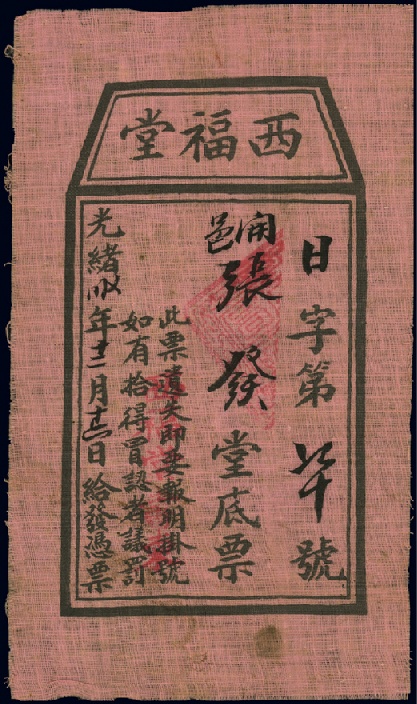 西福堂
日字第 號
開邑張發堂底票
此票遺失即要報明掛號
如有拾得冒認者議罰
光緒 年十二月 日給發憑票